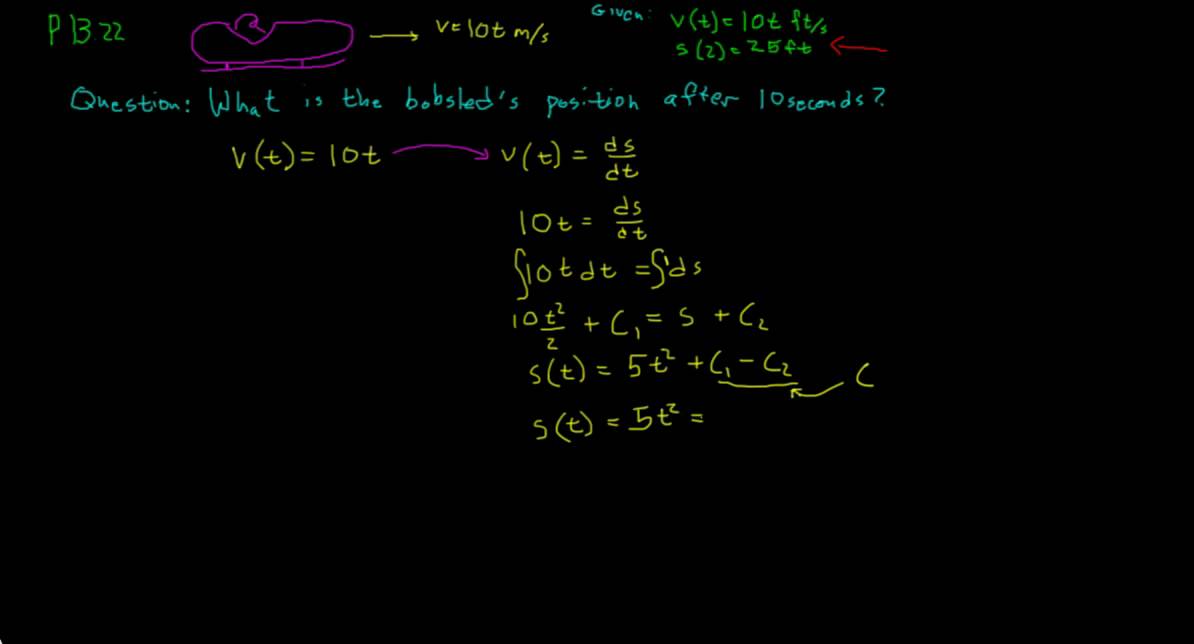 P 13.22
v=10t m/s
Given: v(t)=10t ft/s
s(2)=25ft
Question: What is the bobsled's position after 10 seconds?
v(t)=10t v(t)=ds/dt
10t=ds/dt
∫10t dt=∫ds
10t²/2 + C₁ = s + C₂
s(t) = 5t² + C₁ - C₂ C
s(t) = 5t² =